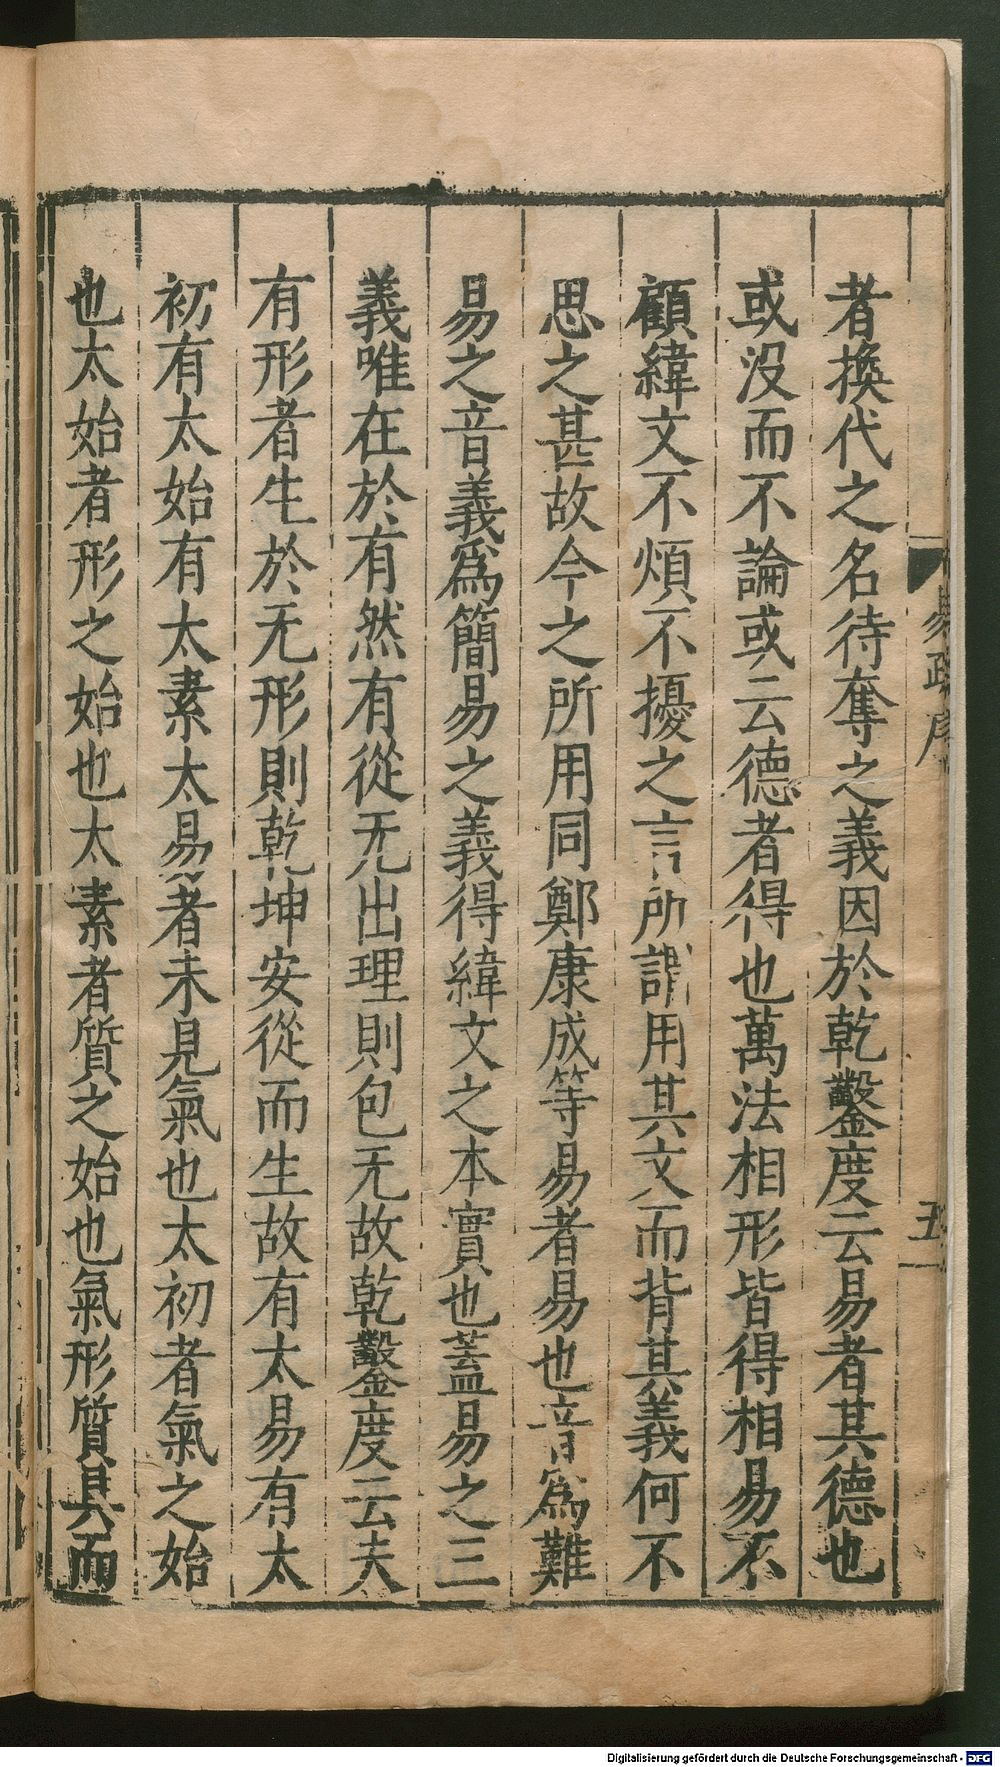 易疏序
五
者換代之名待奪之義因於乾鑿度云易者其德也
或没而不論或云德者得也萬法相形皆得相易不
顧緯文不煩不擾之言所謂用其文而背其義何不
思之甚故今之所用同鄭康成等易者易也音為難
易之音義為簡易之義得緯文之本實也蓋易之三
義唯在於有然有從无出理則包无故乾鑿度云夫
有形者生於无形則乾坤安從而生故有太易有太
初有太始有太素太易者未見氣也太初者氣之始
也太始者形之始也太素者質之始也氣形質具而
Digitalisierung gefördert durch die Deutsche Forschungsgemeinschaft - DFG